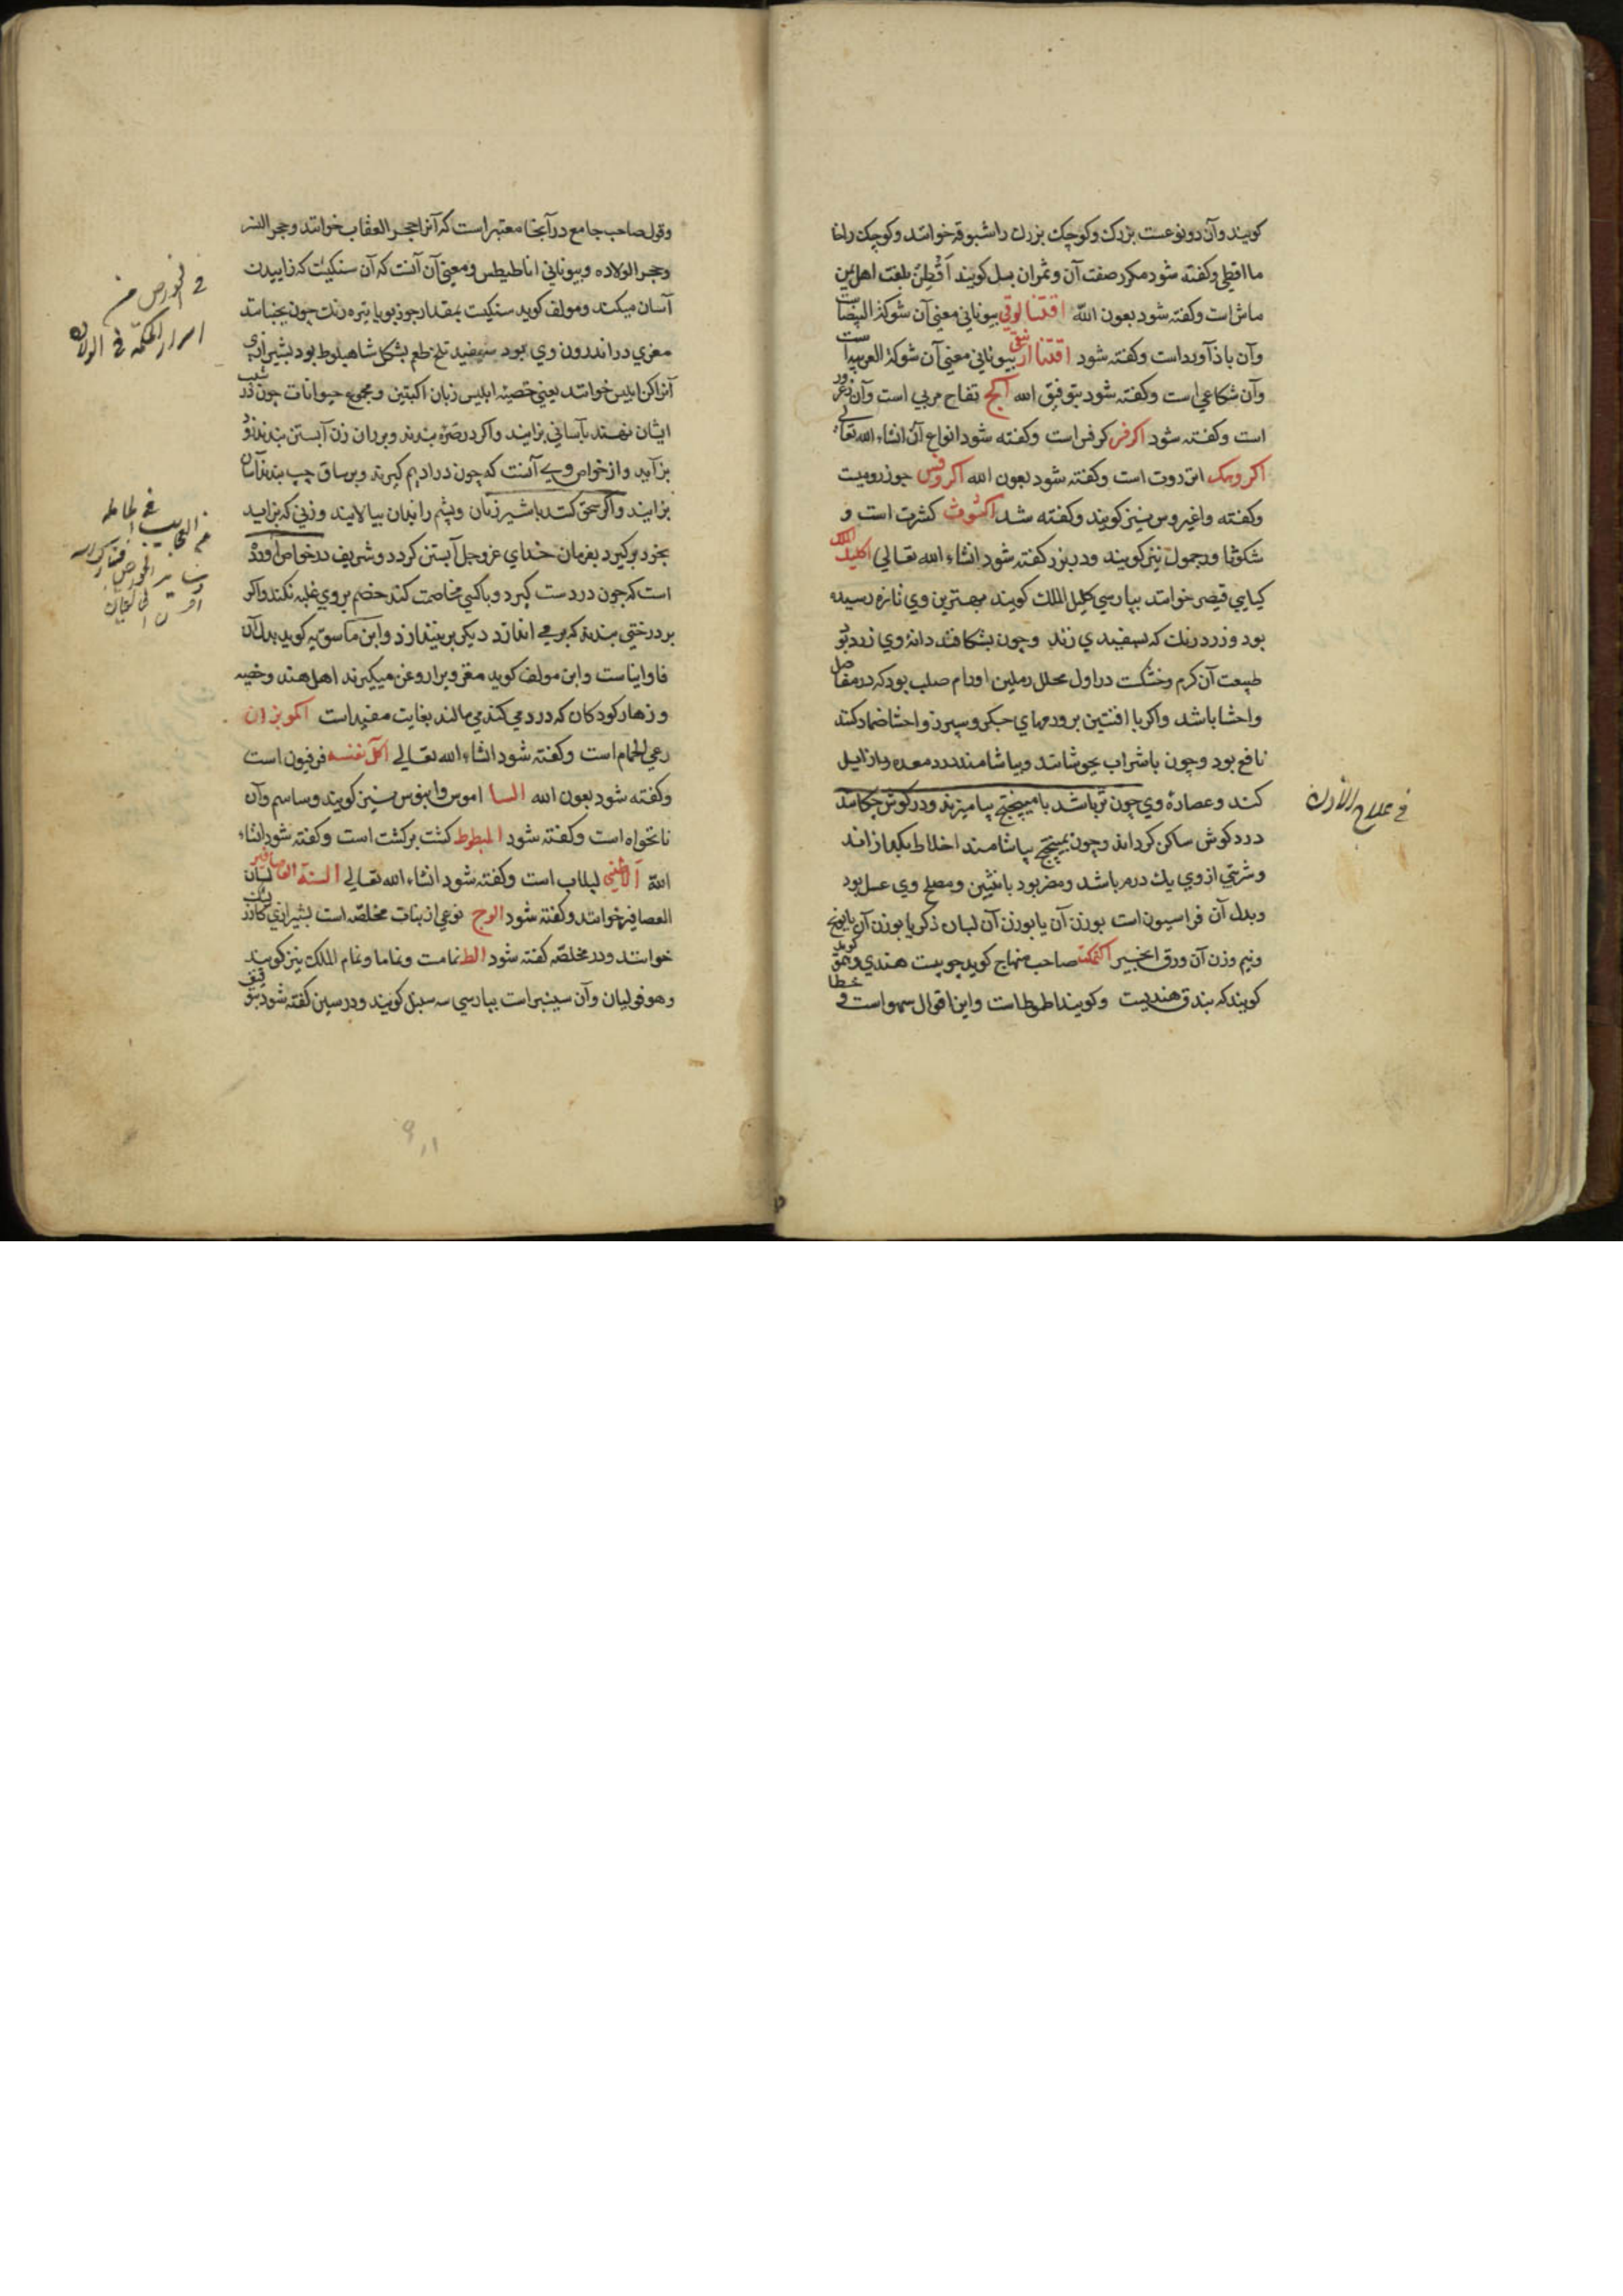 کویند وآن دو نوعست بزرک وکوچک بزرک را شبوقه خوانند وکوچک راخا
ما اقطی وکفته شود مکرر صفت آن وثمران بسل کویند اَقْطِنْ بلغت اهل یمن
ماش است وکفته شود بعون اللّه اقتنا لوقی بیونانی معنی آن شوکة البیضاست
وآن باذآورداست وکفته شود اقتنا ارشقی بیونانی معنی آن شوکة العربیه است
وآن شکاعی است وکفته شود بتوفیق الله اکج تفاح بری است وآن زعرور
است وکفته شود اکرفر کرفس است وکفته شود انواع آن انشاء الله تعالی
اکروهک است وکفته شود بعون الله اکروفس جوز رومیت
وکفته واغیروس نیز کویند وکفته شد اکشوث کشوث است و
شکوثا ودجمول نیز کویند ودر بزر کفته شود انشاء الله تعالی اکلیل الملک
کیاهی قیصر خوانند بپارسی کلیل الملک کویند بهترین وی تازه رسیده
بود وزرد رنک که بسفیدی زند وچون بشکافند دانۀ وی زرد بود
طبیعت آن کرم وخشکست در اول محلل وملین اورام صلب بود که در مفاصل
واحشا باشد واکر با افنتین بر ورمهای جکر وسپرز واحشا ضماد کنند
نافع بود وچون باشراب بجوشانند وبیاشامند درد معده را زایل
کند وعصارۀ وی چون تر باشد با میپختج بیامیزند ودر کوش چکانند
درد کوش ساکن کرداند وچون بمیپختج بیاشامند اخلاط بکدازاند
وشربتی از وی یک درم باشد ومضر بود بانثیین ومصلح وی عسل بود
وبدل آن فراسیون است بوزن آن یا بوزن آن لبان ذکر یا بوزن آن بابونج
ونیم وزن آن ورق انجیر اکتمکت صاحب منهاج کوید چوبیست هندی
کویند که بندق هندیست وکویند اطموط است واین اقوال سهو است و خطا
فی علاج الأذن
وقول صاحب جامع در آنجا معتبر است که آنرا حجر العقاب خوانند وحجر النسر
وحجر الولاده وبیونانی اناطیطس ومعنی آن آنست که آن سنکیست که زاییدن
آسان میکند ومولف کوید سنکیست بمقدار جوز بویا تیره رنک چون بجنبانند
مغزی در اندرون وی بود سپید تلخ طعم بشکل شاهبلوط بود بشیرازی
آنرا کن ابلیس خوانند یعنی خصیۀ ابلیس زنان آبستن ومجموع حیوانات چون در شیب
ایشان نهند بآسانی بزایند واکر در صرۀ بندند وبر ران زن آبستن بندند زود
بزاید واز خواص وی آنست که چون در ادیم کیرند وبر ساق چپ بندند آسان
بزایند واکر سحق کنند باشیر زنان وپشم را بدان بیالایند وزنی که نزاید
بخود برکیرد بفرمان خدای عزوجل آبستن کردد وشریف در خواص آورده
است که چون در دست کیرد وباکسی مخاصمت کند خصم بر وی غلبه نکند واکر
بر درختی بندند که بر می اندازد دیکر بر نیندازد وابن ماسویه کوید بدل آن
فاوانیاست وابن مولف کوید مغز ویرا روغن میکیرند اهل هند وخصیه
وزهار کودکان که درد می کند می مالند بغایت مفید است اکوبزان
رعی الحمام است وکفته شود انشاء الله تعالی اکل نفسه فرفیون است
وکفته شود بعون الله السا اموس وابیوس نیز کویند وساسم وآن
نانخواه است وکفته شود المبطوط کشت برکشت است وکفته شود انشاء
اللّه آلاطینی لبلاب است وکفته شود انشاء الله تعالی السنة العصافیر لسان
العصافیر خوانند وکفته شود الوج نوعی از نبات مخلصه است بشیرازی
خوانند ودر مخلصه کفته شود الط نمامست ونماما ونمام الملک نیز کویند
وهو فولیان وآن سیسنبر است بپارسی سه سنبل کویند ودر سین کفته شود
فی الخواص من
اسرار الحکمة فی الولادة